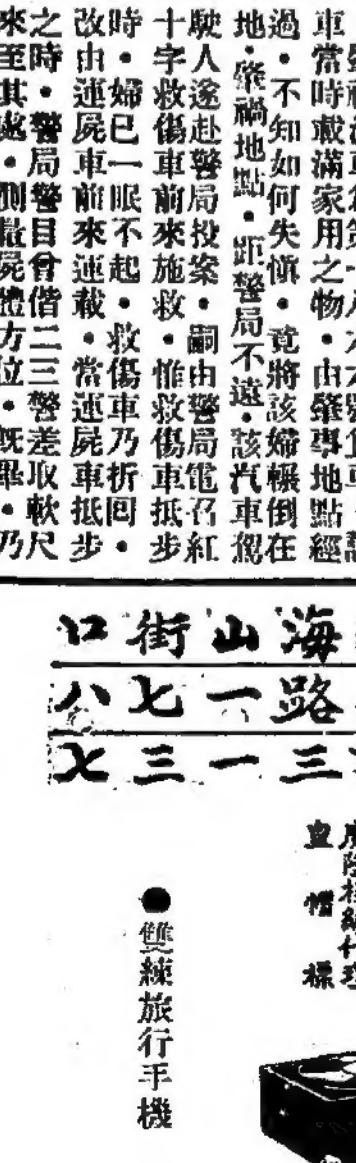 車當時載滿家用之物・由肇事地點經
過・不知如何失慎・竟將該婦輾倒在
地・肇禍地點・距警局不遠・該汽車駕
駛人遂赴警局投案・嗣由警局電召紅
十字救傷車前來施救・惟救傷車抵步
時・婦已一眠不起・救傷車乃折囘・
改由運屍車前來運載・當運屍車抵步
之時・警局警目會偕二三警差取軟尺
來至其處・測量屍體方位・既畢・乃
海山街口
路一七八
三一三七
皇帽標
●雙鍊旅行手機